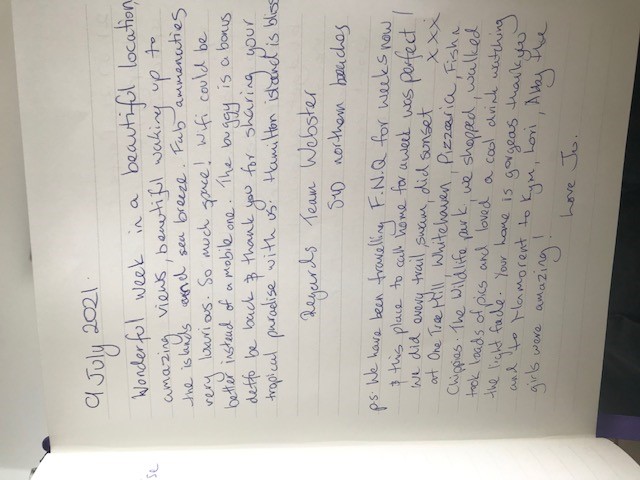 9 July 2021.
Wonderful week in a beautiful location,
amazing views, beautiful waking up to
the islands and sea breeze. Fab ammenuties
very luxurious. So much space! Wifi could be
better instead of a mobile one. The buggy is a bonus
defto be back & thank you for sharing your
tropical paradise with us. Hamilton island is bliss
Regards Team Webster
SYD northern beaches
ps: We have been travelling F.N.Q for weeks now
& this place to call home for a week was perfect!
We did every trail, swam, did sunset xxx
at One Tree Hill, Whitehaven, Pizzaeria, Fish n
Chippies. The Wildlife park, we shopped, walked
took loads of pics and loved a cool drink watching
the light fade. Your home is gorgeas thankyou
and to Mamorent to Kym, Lori, Abby the
girls were amazing!
Love Ju.
se